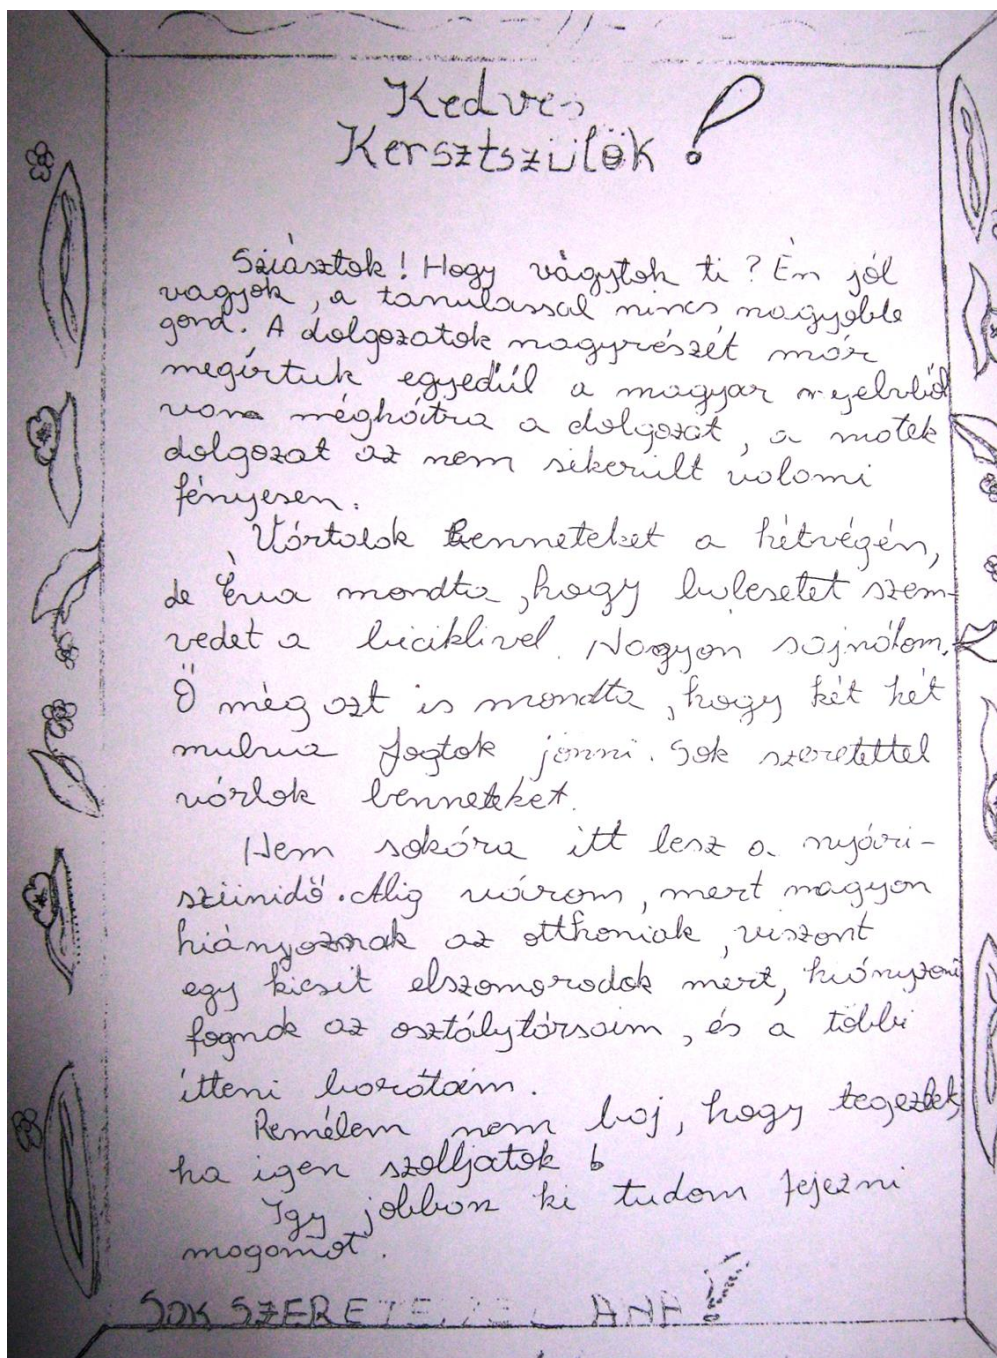 Kedves
Kersztszülők !
Sziásztok! Hogy vágytok ti? Én jól
vagyok, a tanulással nincs nagyobb
gond. A dolgozatok nagyrészét már
megírtuk egyedűl a magyar nyelvből
van méghátra a dolgozat, a matek
dolgozat az nem sikerült valami
fényesen.
Vártalak benneteket a hétvégén,
de Éva mondta, hogy balesetet szem-
vedet a biciklivel. Nagyon sajnálom.
Ő még azt is mondta, hogy két hét
mulva fogtok jönni. Sok szeretettel
várlak benneteket.
Nem sokára itt lesz a nyári-
szünidő. Alig várom, mert nagyon
hiányoznak az otthoniak, viszont
egy kicsit elszomorodok mert, hiányzani
fognak az osztálytársaim, és a többi
itteni barátaim.
Remélem nem baj, hogy tegezlek,
ha igen szolljatok !
Igy jobban ki tudom fejezni
magamat.
SOK SZERETETTEL ANA !